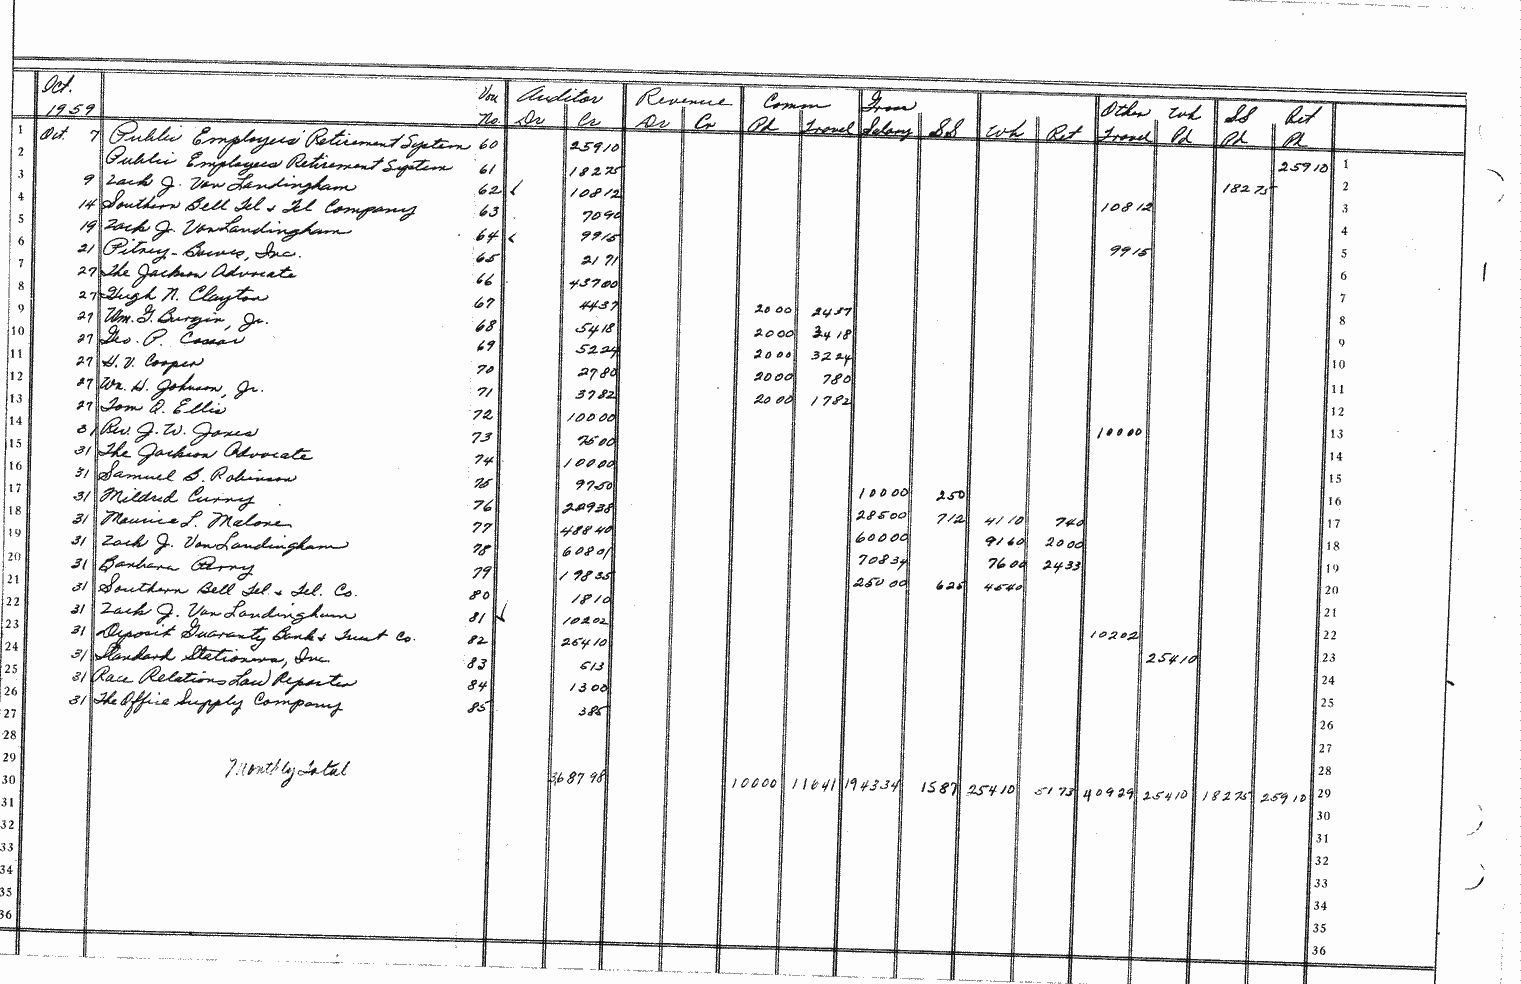 Oct. 1959 Vou No Auditor Dr Cr Revenue Dr Cr Comm Pd Travel Gross Salary SS Wh Ret Other Travel Wh Pd SS Pd Ret Pd
1 Oct. 7 Public Employees Retirement System 60 259 10 259 10 1
2 Public Employees Retirement System 61 182 75 182 75 2
3 9 Zack J. Van Landingham 62 108 12 108 12 3
4 14 Southern Bell Tel & Tel Company 63 70 90 4
5 19 Zack J. Van Landingham 64 99 15 99 15 5
6 21 Pitney-Bowes, Inc. 65 21 71 6
7 27 The Jackson Advocate 66 437 00 7
8 27 Hugh N. Clayton 67 44 37 20 00 24 37 8
9 27 Wm. G. Burgin, Jr. 68 54 18 20 00 34 18 9
10 27 Geo. P. Cossar 69 52 24 20 00 32 24 10
11 27 H. V. Cooper 70 27 80 20 00 7 80 11
12 27 Wm. H. Johnson, Jr. 71 37 82 20 00 17 82 12
13 27 Tom Q. Ellis 72 100 00 100 00 13
14 31 Rev. J. W. Jones 73 75 00 14
15 31 The Jackson Advocate 74 100 00 15
16 31 Samuel B. Robinson 75 97 50 100 00 2 50 16
17 31 Mildred Curry 76 229 38 285 00 7 12 41 10 7 40 17
18 31 Maurice L. Malone 77 488 40 600 00 91 60 20 00 18
19 31 Zack J. Van Landingham 78 608 01 708 34 76 00 24 33 19
20 31 Barbara Perry 79 198 35 250 00 6 25 45 40 20
21 31 Southern Bell Tel. & Tel. Co. 80 18 10 21
22 31 Zack J. Van Landingham 81 102 02 102 02 22
23 31 Deposit Guaranty Bank & Trust Co. 82 254 10 254 10 23
24 31 Standard Stationers, Inc. 83 5 13 24
25 31 Race Relations Law Reporter 84 13 00 25
26 31 The Office Supply Company 85 3 85 26
27 27
28 28
29 Monthly Total 3687 98 100 00 116 41 1943 34 15 87 254 10 51 73 409 29 254 10 182 75 259 10 29
30 30
31 31
32 32
33 33
34 34
35 35
36 36